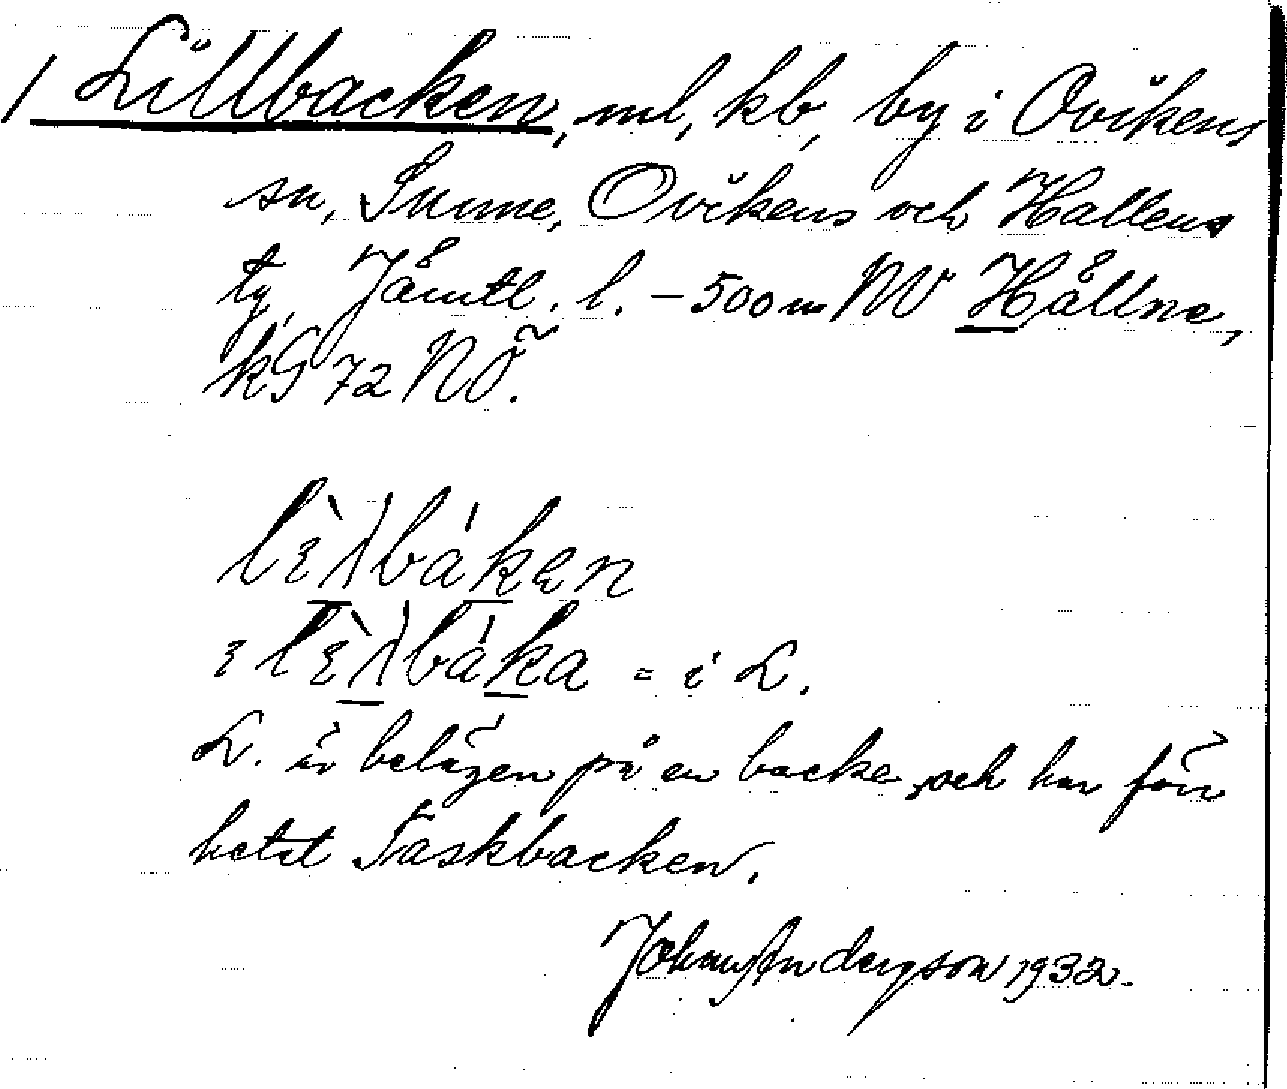 1 Lillbacken, ml, kb, by i Ovikens
sn, Sunne, Ovikens och Hallens
tg, Jämtl. l. – 500 m NV Hållne,
kG 72 NÖ.
lìλbáken
ɩ lìλbáka = i L.
L. är belägen på en backe och har förr
hetat Taskbacken.
Johnny Andersson 1932.